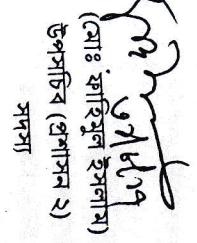 (মোঃ ফাহিমুল ইসলাম)
উপসচিব (প্রশাসন ২)
সদস্য